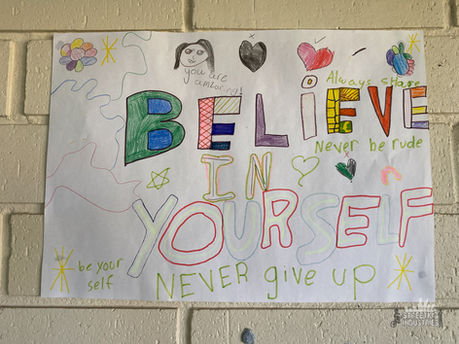 you are
amazing!
Always share
BELiEVE
Never be rude
IN
YOURSELF
be your
self
NEVER give up
INDUSTRIES